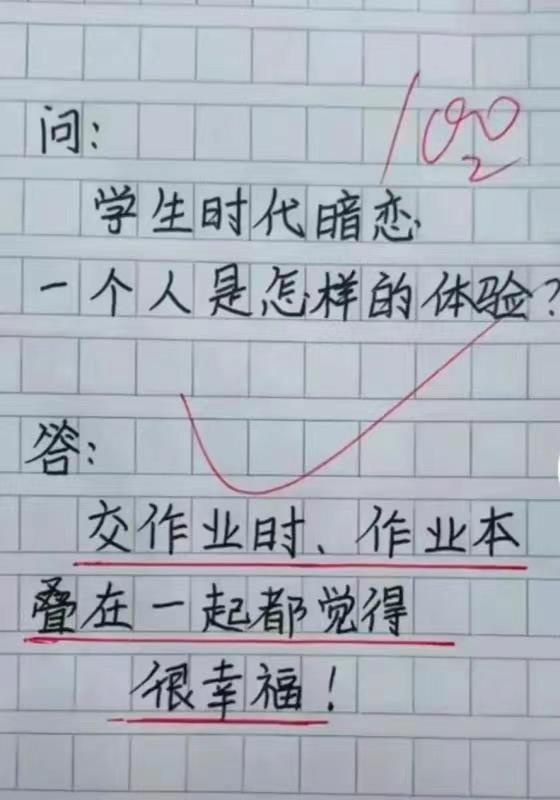 100
问：
学生时代暗恋
一个人是怎样的体验？
答：
交作业时、作业本
叠在一起都觉得
很幸福！